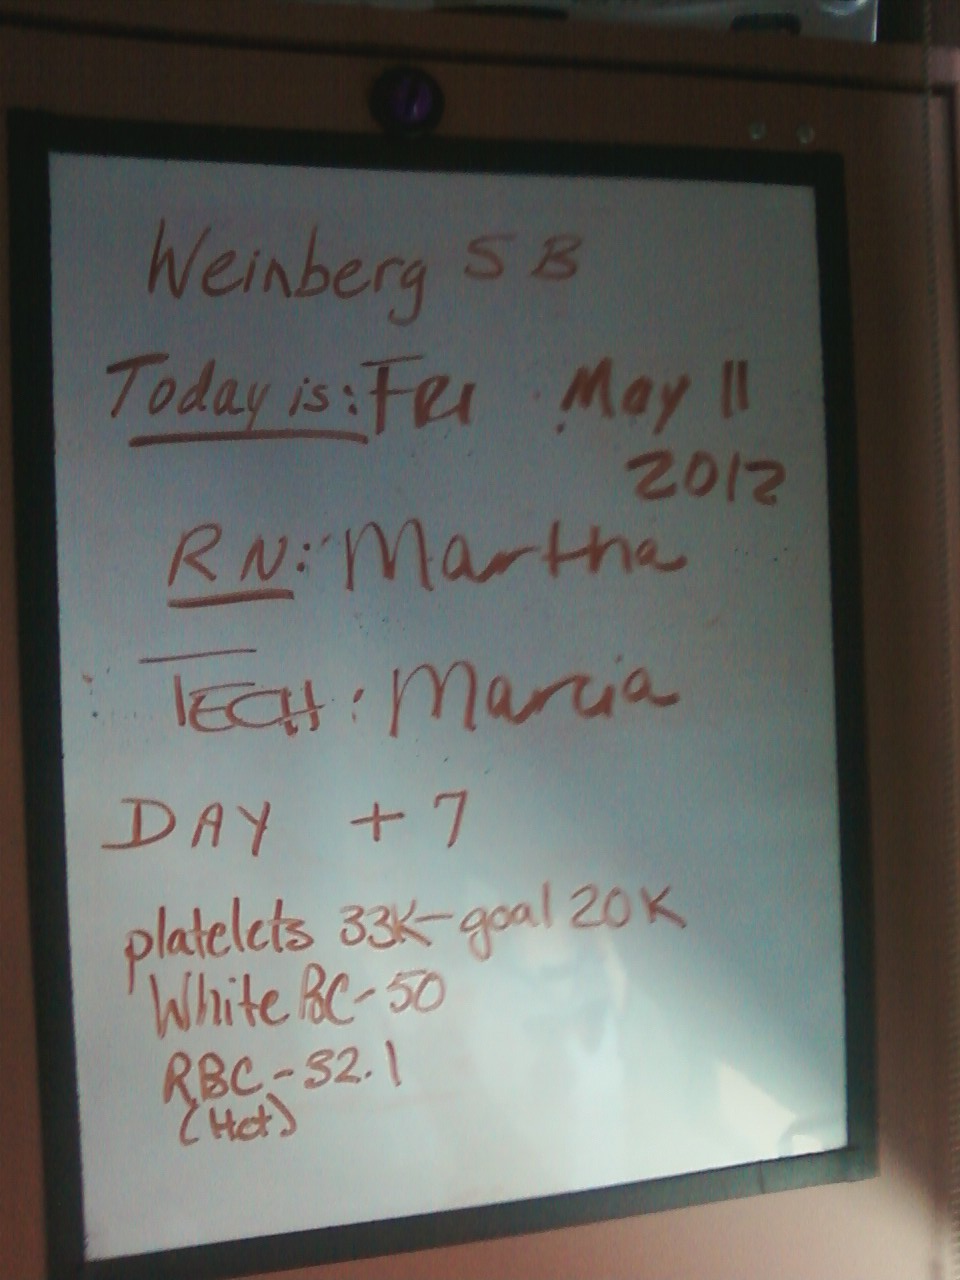 Weinberg 5B
Today is: Fri May 11
2012
RN: Martha
TECH: Marcia
DAY + 7
platelets 33K-goal 20K
White BC-50
RBC-32.1
(Hct)